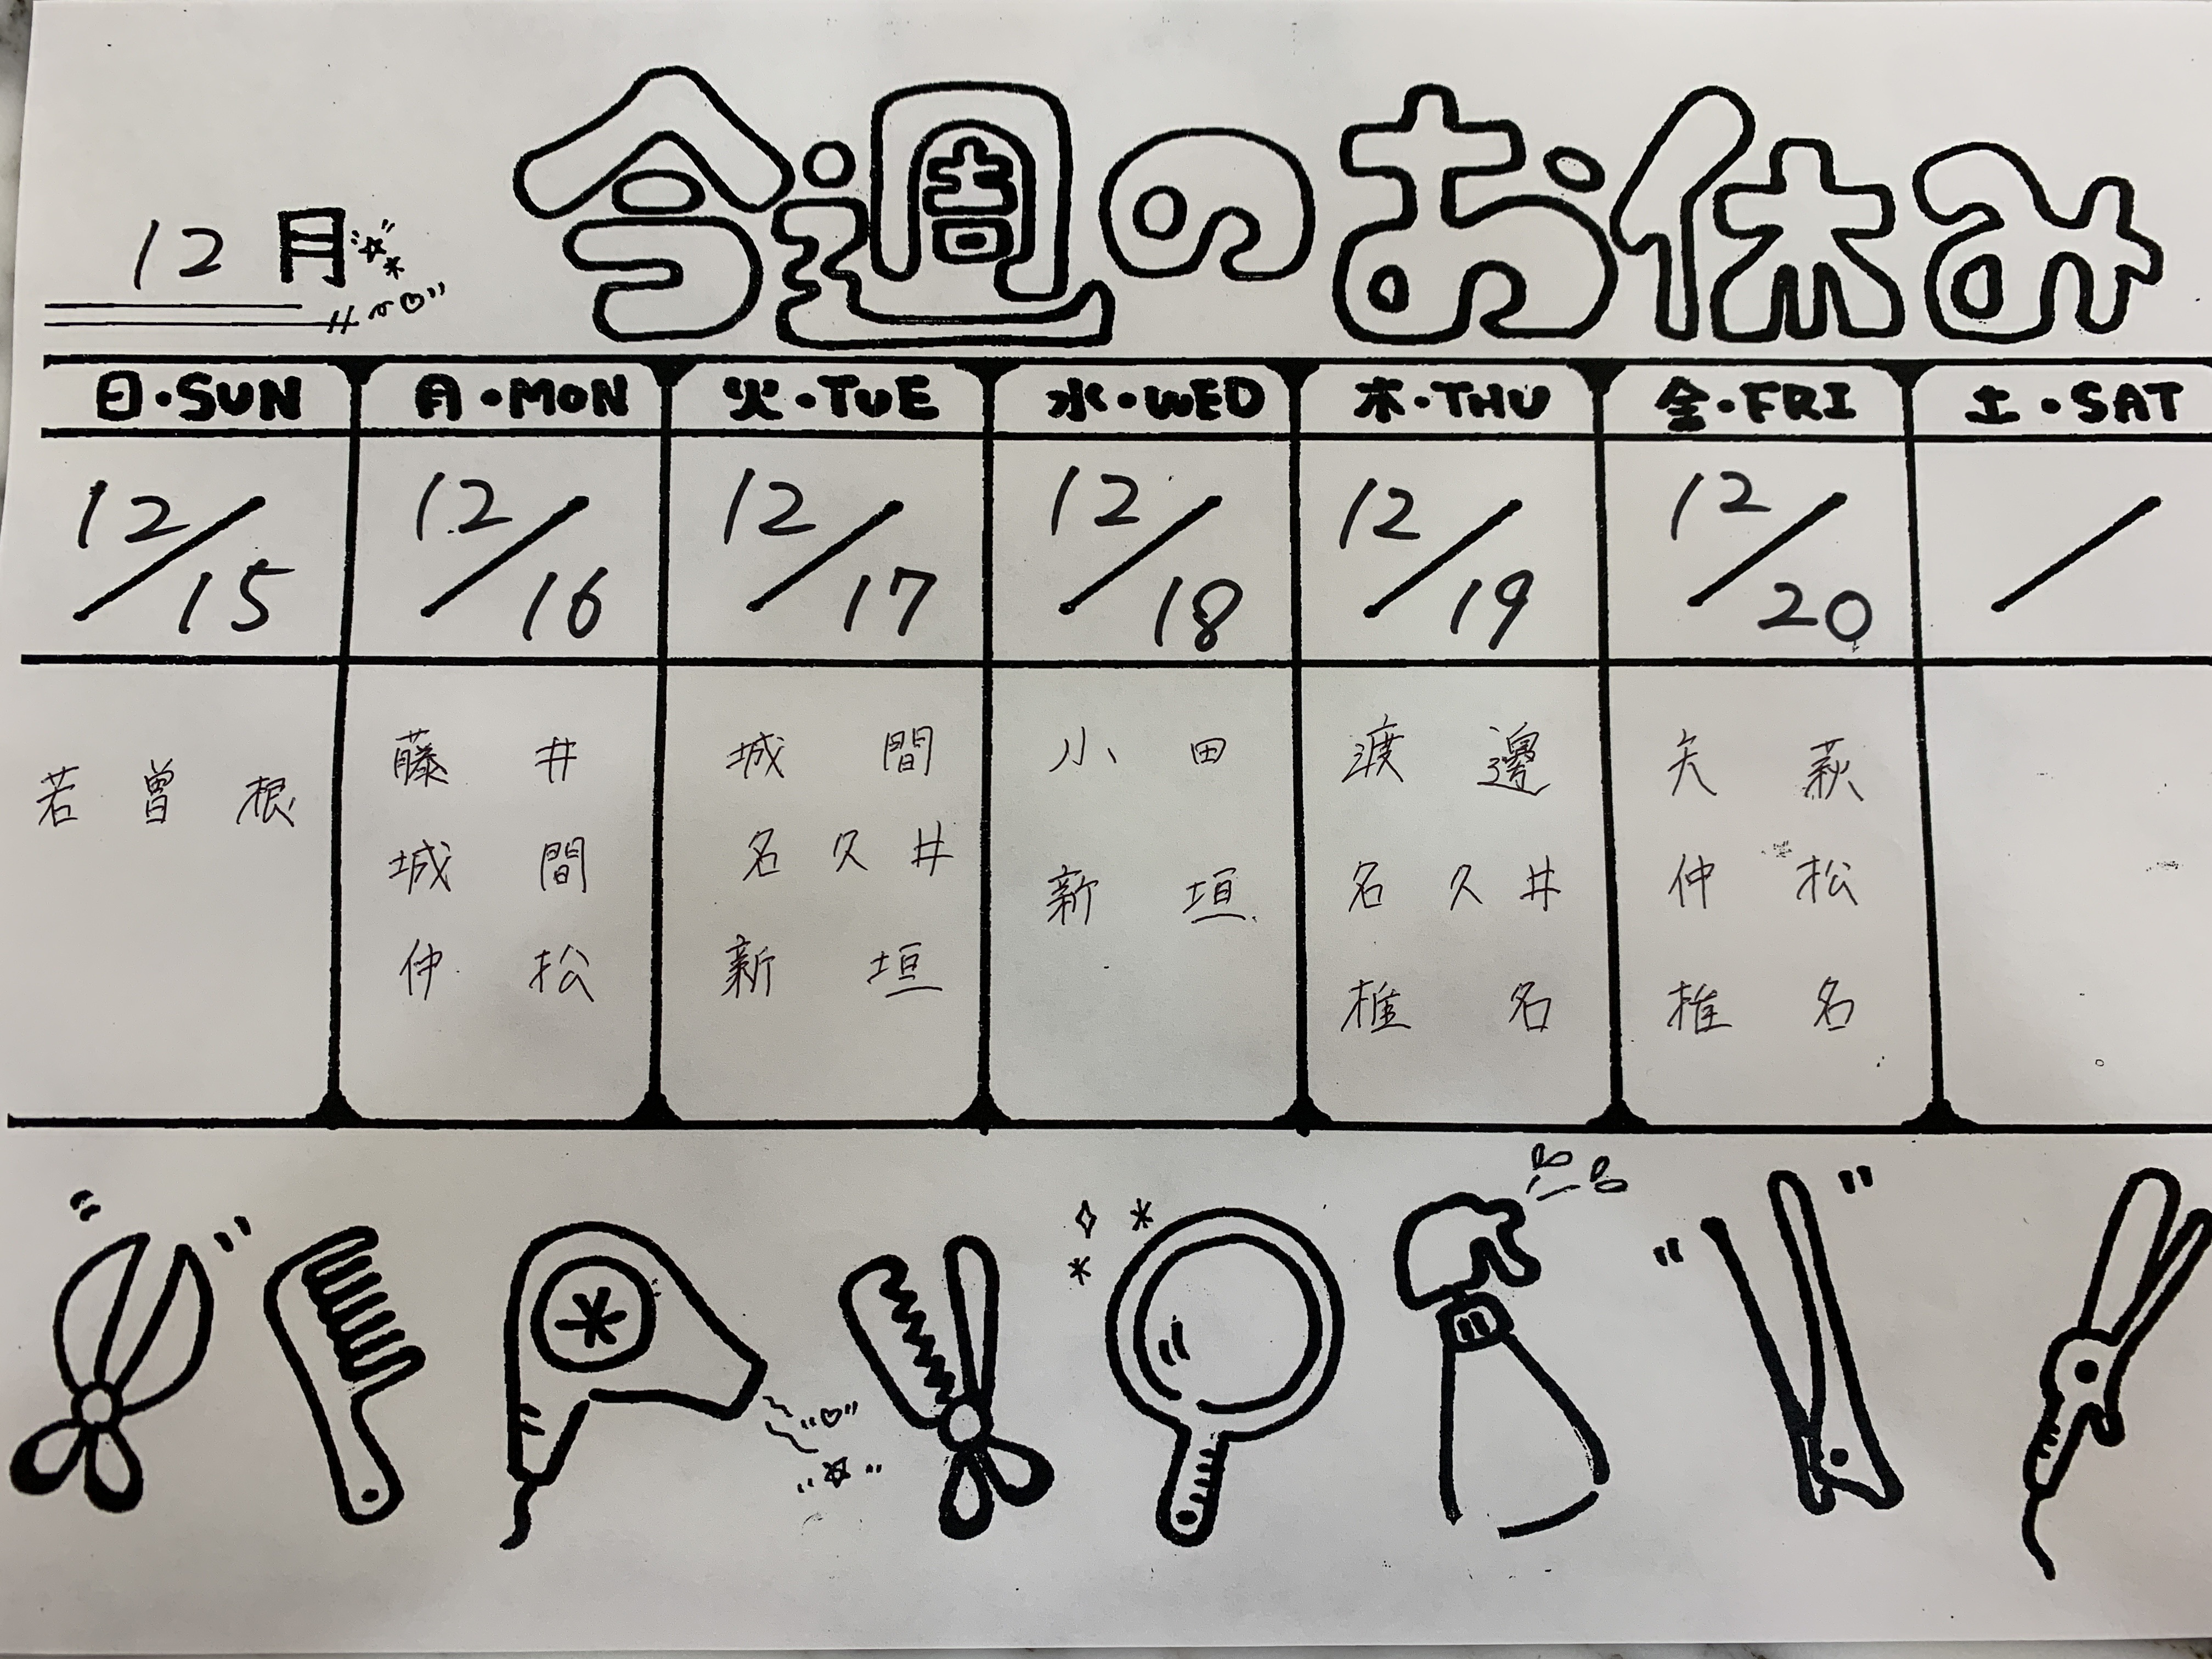 今週のお休み
12月
日・SUN 月・MON 火・TUE 水・WED 木・THU 金・FRI 土・SAT
12/15 12/16 12/17 12/18 12/19 12/20 /
若曽根
藤井
城間
仲松
城間
名久井
新垣
小田
新垣
渡邊
名久井
椎名
矢萩
仲松
椎名